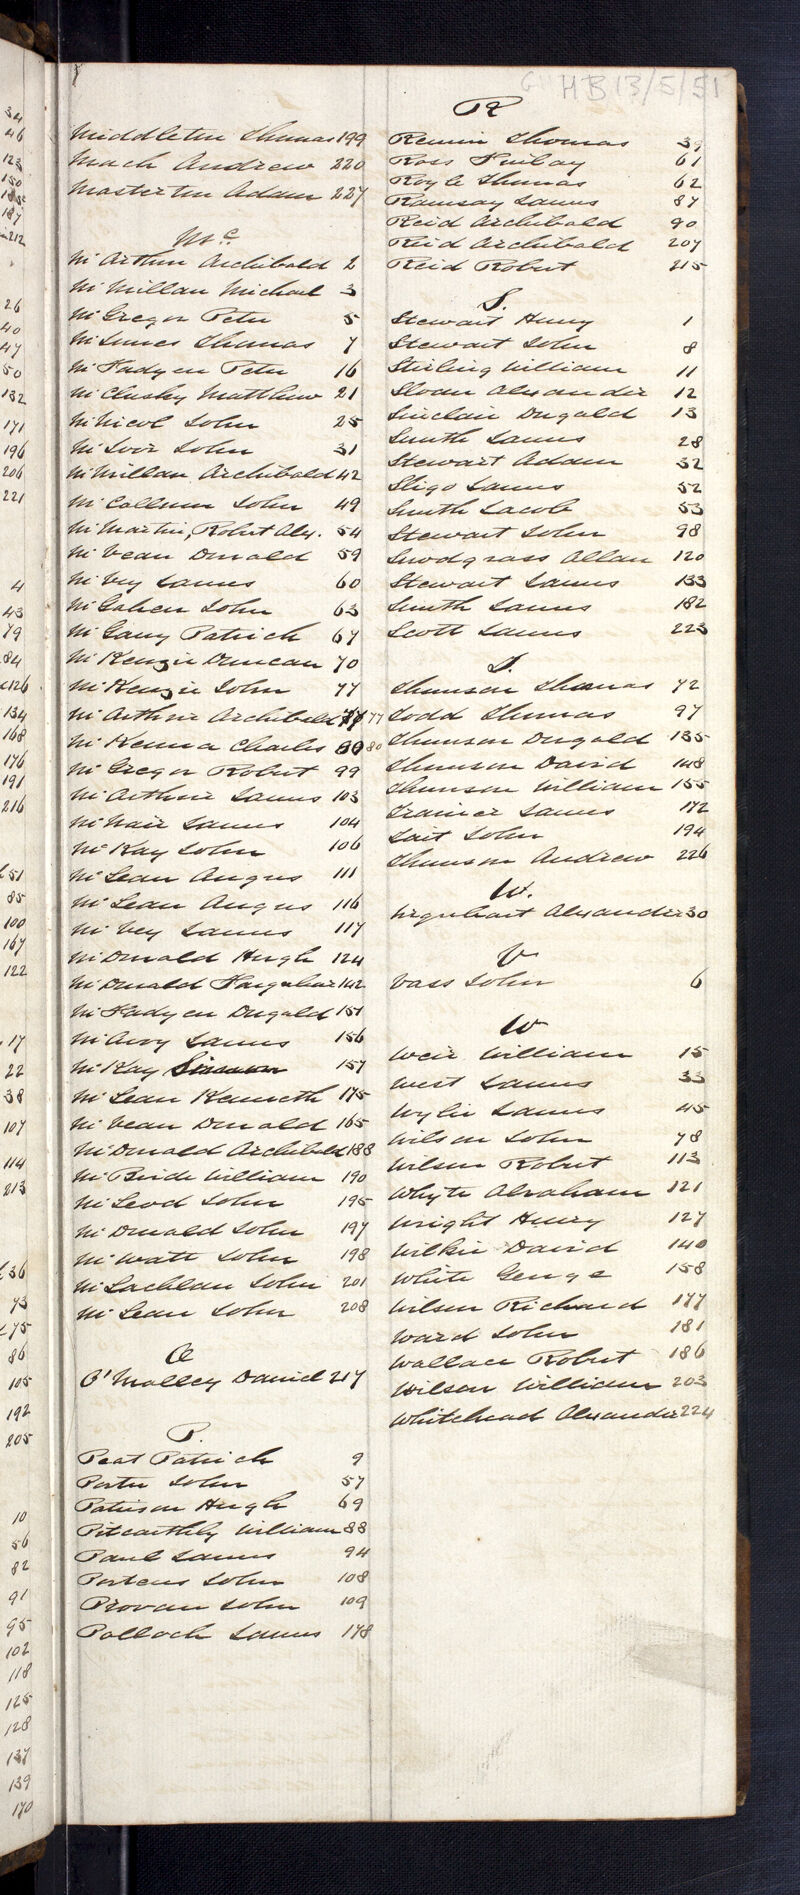 34
46
123
150
185
187
212
26
40
47
50
132
171
196
206
221
4
43
79
84
126
134
168
176
191
216
51
85
100
167
122
17
22
38
107
114
213
36
73
75
86
105
192
205
10
56
82
91
95
102
118
125
128
137
139
170
Middleton Thomas 199
Mack Andrew 220
Masterton Adam 227
Mc
Mc Arthur Archibald 2
Mc Millan Michael 3
Mc Gregor Peter 5
Mc Innes Thomas 7
Mc Fadyen Peter 16
Mc Clusky Matthew 21
Mc Nicol John 25
Mc Ivor John 31
Mc Millan Archibald 42
Mc Callum John 49
Mc Martin, Robert Alex. 54
Mc Vean Donald 59
Mc Vey James 60
Mc Gahen John 63
Mc Gany Patrick 67
Mc Kenzie Duncan 70
Mc Kenzie John 77
Mc Arthur Archibald 77
Mc Kenna Charles 80 80
Mc Gregor Robert 99
Mc Arthur James 103
Mc Nair James 104
Mc Kay John 106
Mc Lean Angus 111
Mc Lean Angus 116
Mc Vey James 117
Mc Donald Hugh 124
Mc Donald Farquhar 142
Mc Fadyen Dugald 151
Mc Avoy James 156
Mc Kay Simon 157
Mc Lean Kenneth 175
Mc Vean Donald 165
Mc Donald Archibald 188
Mc Bride William 190
Mc Leod John 195
Mc Donald John 197
Mc Watt John 198
Mc Lachlan John 201
Mc Lean John 208
O
O'Malley Daniel 217
P.
Peat Patrick 9
Porter John 57
Paterson Hugh 69
Pitcaithly William 88
Paul James 94
Porteus John 108
Provan John 109
Pollock James 178
HB13/5/51
R
Rennie Thomas 39
Ross Finlay 61
Royle Thomas 62
Ramsay James 87
Reid Archibald 90
Reid Archibald 207
Reid Robert 215
S.
Stewart Henry 1
Stewart John 8
Stirling William 11
Sloan Alexander 12
Sinclair Dugald 13
Smith James 28
Stewart Adam 32
Sligo James 52
Smith Jacob 53
Stewart John 98
Snodgrass Allan 120
Stewart James 133
Smith James 182
Scott James 223
T.
Thomson Thomas 72
Todd Thomas 97
Thomson Dugald 135
Thomson David 148
Thomson William 155
Trainer James 172
Tait John 194
Thomson Andrew 226
U.
Urquhart Alexander 30
V
Vass John 6
W
Weir William 15
West James 33
Wylie James 45
Wilson John 78
Wilson Robert 113
Whyte Abraham 121
Wright Henry 127
Wilkie David 140
White George 158
Wilson Richard 177
Ward John 181
Wallace Robert 186
Wilson William 203
Whitehead Alexander 224